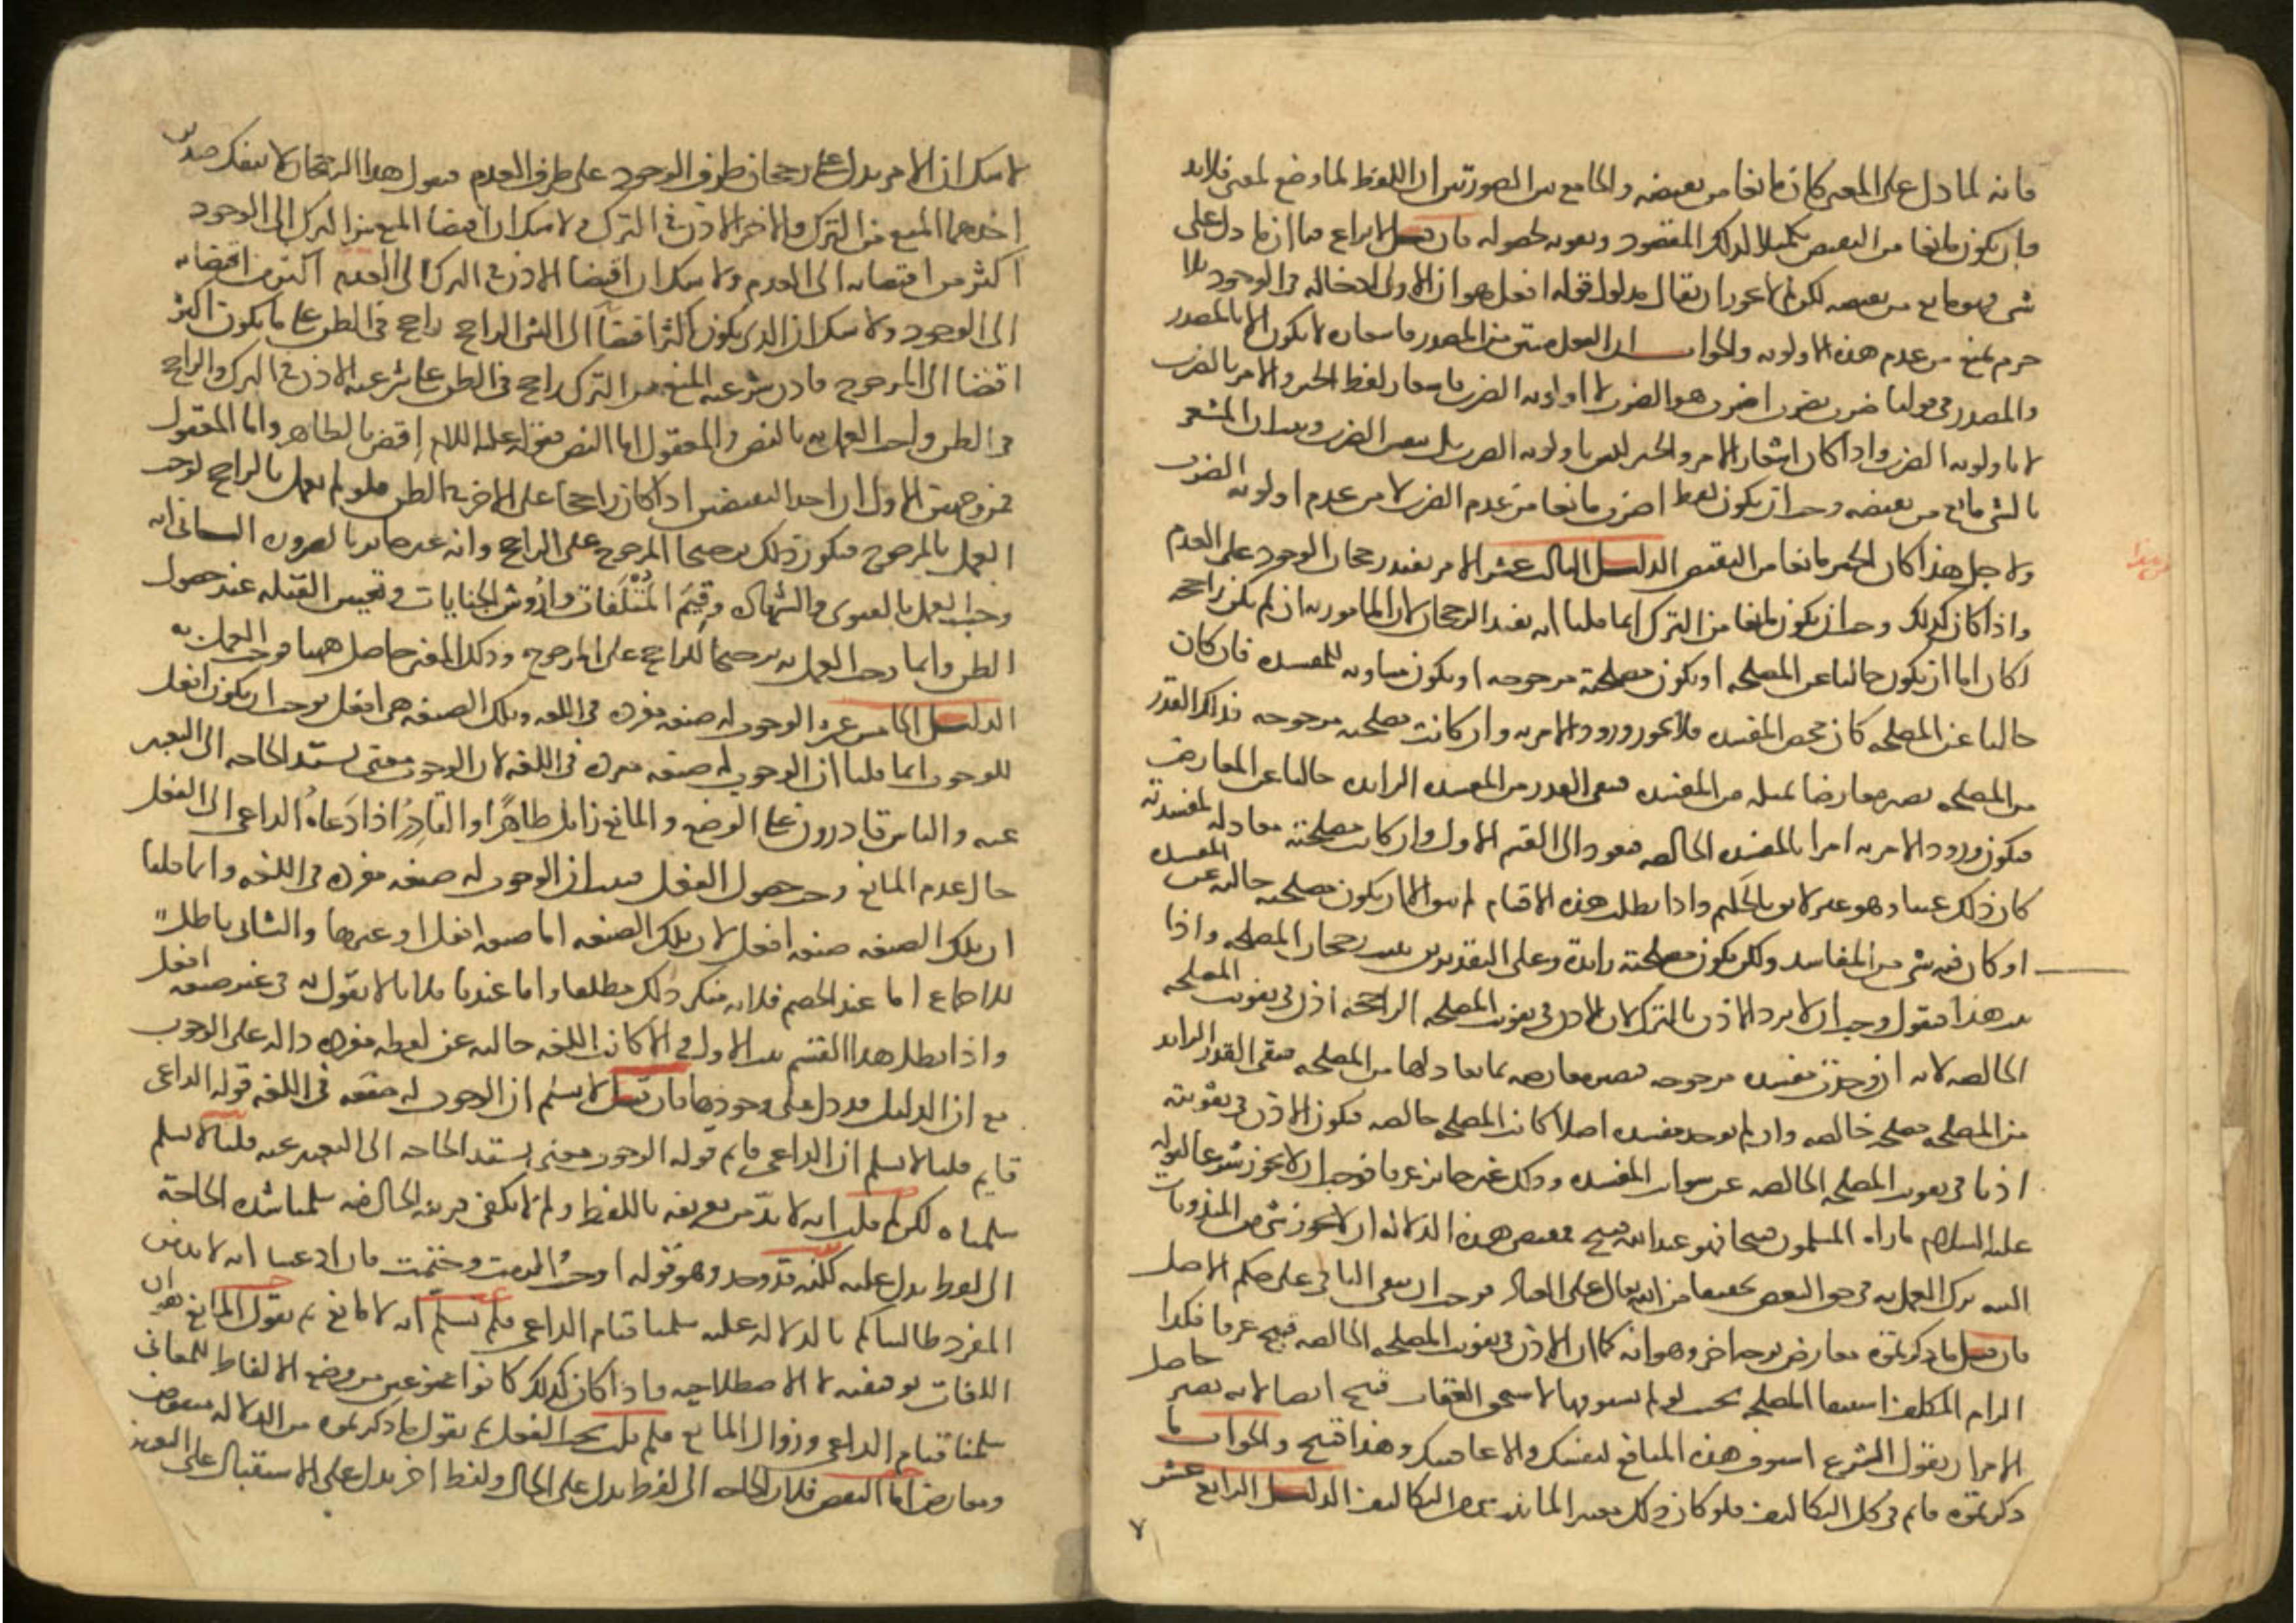 فانه لما دل على المعنى كان مانعا من نقيضه والجامع بين الصورتين ان اللفظ لما وضع لمعنى فلابد
وان يكون مانعا من النقيض تكميلا لذلك المقصود وتقويه لحصوله فان قيل لا نزاع في ان ما دل على
شي فهو مانع من نقيضه لكن لم لا يجوز ان يقال مدلول قوله افعل هو ان الاولى ادخاله في الوجود فلا
جرم يمنع من عدم هذه الاولويه والجواب ان الفعل مشتق من المصدر فاشعاره لا يكون الا بالمصدر
والمصدر في قولنا ضرب يضرب اضرب هو الضرب لا اولويه الضرب فاشعار لفظ الخبر والامر بالضرب
لا باولويه الضرب واذا كان اشعار الامر والخبر ليس باولويه الضرب بل بنفس الضرب وبينا ان المشعر
بالشي مانع من نقيضه وجب ان يكون لفظ اضرب مانعا من عدم الضرب لا من عدم اولويه الضرب
ولاجل هذا كان الخبر مانعا من النقيض الدليل الثالث عشر الامر يفيد رجحان الوجود على العدم
واذا كان كذلك وجب ان يكون مانعا من الترك انما قلنا انه يفيد الرجحان لان المامور به ان لم يكن راجحا
لكان اما ان يكون خاليا عن المصلحه او يكون مصلحته مرجوحه او يكون مساويه للمفسده فان كان
خاليا عن المصلحه كان محض المفسده فلا يجوز ورود الامر به وان كانت مصلحته مرجوحه فذلك القدر
من المصلحه يصير معارضا بمثله من المفسده فيبقى القدر من المفسده الزايده خاليا عن المعارض
فيكون ورود الامر به امرا بالمفسده الخالصه فيعود الى القسم الاول وان كان مصلحته معادله لمفسدته
كان ذلك عبثا وهو غير لايق بالحكيم واذا بطلت هذه الاقسام لم يبق الا ان يكون مصلحته خاليه عن المفسده
او كان فيه شي من المفاسد ولكن يكون مصلحته زايدة وعلى التقديرين ثبت رجحان المصلحه واذا
ثبت هذا فنقول وجب ان لا يرد الاذن بالترك لان الاذن في تفويت المصلحه الراجحه اذن في تفويت المصلحه
الخالصه لانه ان وجدت مفسده مرجوحه فتصير معارضه بما يعادلها من المصلحه فيبقى القدر الزايد
من المصلحه مصلحه خالصه وان لم توجد مفسده اصلا كانت المصلحه خالصه فيكون الاذن في تفويته
اذنا في تفويت المصلحه الخالصه عن شوايب المفسده وذلك غير جايز عرفا فوجب ان لا يجوز شرعا لقوله
عليه السلام ماراه المسلمون قبيحا فهو عند الله قبيح فمقتضى هذه الدلاله ان لا يجوز شي من المندوبات
البته ترك العمل به في حق البعض تخفيفا من الله تعالى على العباد فوجب ان يبقى الباقي على حكم الاصل
فان قيل ما ذكرتموه معارض بوجه اخر وهو انه كما ان الاذن في تفويت المصلحه الخالصه قبيح عرفا فكذا
الزام المكلف استيفا المصلحه بحيث لو لم يستوفها لاستحق العقاب قبيح ايضا لانه يصير حاصل
الامر ان يقول الشرع استوف هذه المنافع لنفسك والا عاقبتك وهذا قبيح والجواب ما
ذكرتموه قايم في كل التكاليف فلو كان ذلك معتبرا لما ثبت شي من التكاليف الدليل الرابع عشر
لا شك ان الامر يدل على رجحان طرف الوجود على طرف العدم فنقول هذا الرجحان لا ينفك عن قيدين
احدهما المنع من الترك والاخر الاذن في الترك ولا شك ان افضا المنع من الترك الى الوجود
اكثر من افضايه الى العدم ولا شك ان افضا الاذن في الترك الى العدم اكثر من افضايه
الى الوجود ولا شك ان الذي يكون اكثر افضاا الى الشي الراجح راجح في الظن على ما يكون اكثر
افضا الى المرجوح فاذن شرعيه المنع من الترك راجح في الظن على شرعيه الاذن في الترك والراجح
في الظن واجب العمل به بالنص والمعقول اما النص فقوله عليه السلام اقض بالظاهر واما المعقول
فمن وجهين الاول ان احد النقيضين اذا كان راجحا على الاخر في الظن فلو لم يعمل بالراجح لوجب
العمل بالمرجوح فيكون ذلك ترجيحا للمرجوح على الراجح وانه غير جايز بالضروره الثاني انه
وجب العمل بالفتوى والشهاده وقِيَم المتلَفات واُروش الجنايات وتعيين القبله عند حصول
الظن وانما وجب العمل به ترجيحا للراجح على المرجوح وذلك المعنى حاصل ههنا فوجب العمل به
الدليل الخامس عشر الوجوب له صيغه مفرده في اللغه وتلك الصيغه هي افعل فوجب ان يكون افعل
للوجوب انما قلنا ان الوجوب له صيغه مفرده في اللغه لان الوجوب معنى تشتد الحاجه الى التعبير
عنه والناس قادرون على الوضع والمانع زايل ظاهرًا والقادِرُ اذا دَعاهُ الداعي الى الفعل
حال عدم المانع وجب حصول الفعل فثبت ان الوجوب له صيغه مفرده في اللغه وانما قلنا
ان تلك الصيغه صيغه افعل لان تلك الصيغه اما صيغه افعل او غيرها والثاني باطل
للاجماع اما عند الخصم فلانه منكر ذلك مطلقا واما عندنا فلانا لا نقول به في غير صيغه افعل
واذا بطل هذا القسم ثبت الاول والا لكانت اللغه خاليه عن لفظه مفرده داله على الوجوب
مع ان الدليل قد دل على وجودها فان قيل لا نسلم ان الوجوب له صيغه في اللغه قوله الداعي
قايم قلنا لا نسلم ان الداعي قايم قوله الوجوب معنى تشتد الحاجه الى التعبير عنه قلنا لا نسلم
سلمناه لكن لم قلت انه لا بد من تعريفه باللفظ ولم لا يكفي فيه قرينه الحال سلمنا شده الحاجة
الى لفظ يدل عليه لكنه قد وجد وهو قوله اوجبُ والزمت وحتّمت فان ادعيت انه لا بد من
المفرد طالبناكم بالدلاله عليه سلمنا قيام الداعي فلم قلتم انه لا مانع ثم نقول المانع هو ان
اللغات توقيفيه لا اصطلاحيه واذا كان كذلك كانوا ممنوعين من وضع الالفاظ للمعاني
سلمنا قيام الداعي وزوال المانع فلم قلت يجب الفعل ثم نقول ما ذكرتموه من الدلاله منقوض
ومعارض اما النقض فلان الحاجه الى لفظ يدل على الحال ولفظ اخر يدل على الاستقبال على التعيين